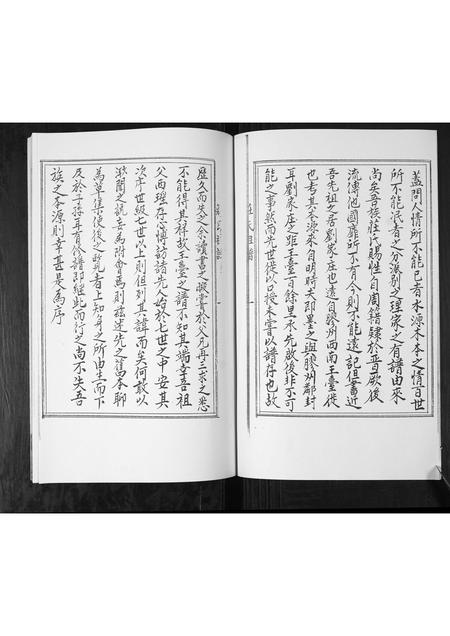 蓋聞人情所不能已者水源木本之情百世
所不能泯者之分派別之理家之有譜由來
尚矣吾族莊氏賜姓自周籍肄於晉厥後
流傳他國靡所不有今則不能遠記但舊近
吾先祖之居劉家庄也遠自膠州西南王臺從
也考其本源來自明時天即墨之與膠州鄰封
耳劉家庄之距王臺百餘里承先啟後非不可
能之事然而先世從以口授未嘗以譜存也故
歷久而失之余讀書之暇嘗於父凡再三求之悉
不能得其祥故王臺之譜不知其端幸吾祖
父西瑆存心博訪諸先人始於七世之中安其
次序世級七世以上則但列其諱而矣何敢以
淤聞之說妄為附會焉則茲述先之舊本聊
為草集俾後之覧者上知身之所由生而下
及於子孫耳育修譜即繼此而行之尚不失吾
族之本源則幸甚是為序
莊氏祖譜